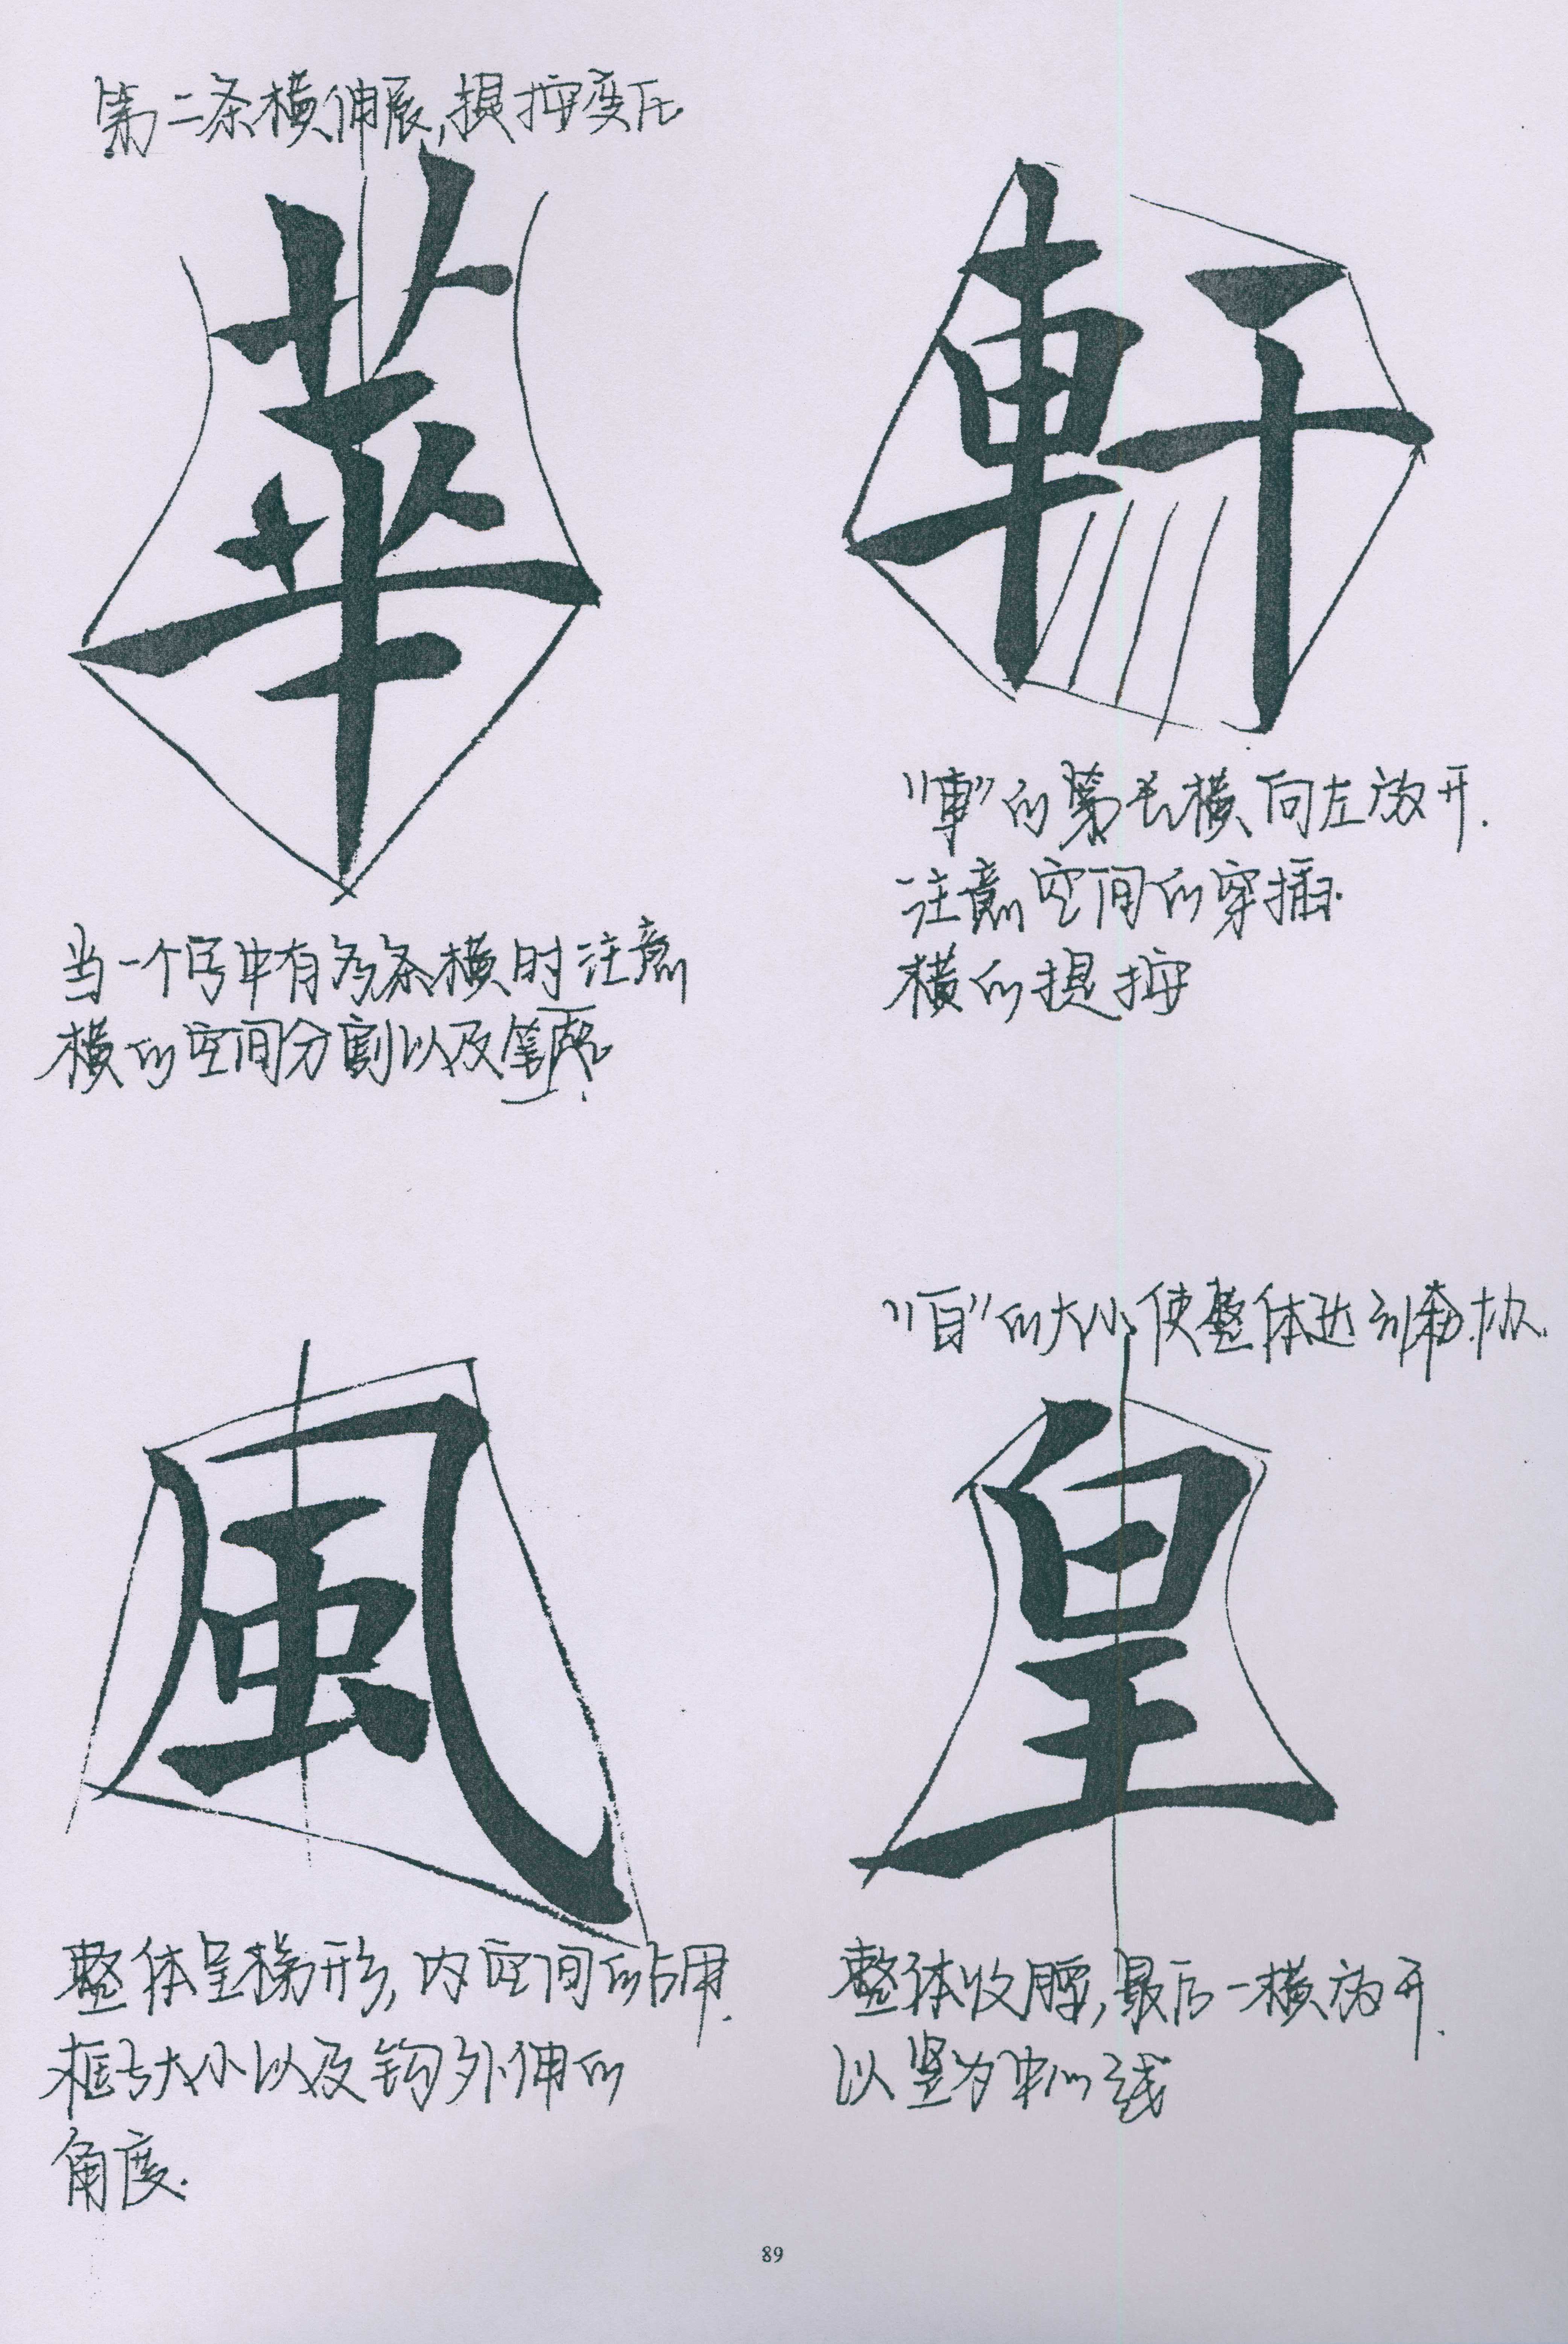 第二条横伸展,提按变化.
華
当一个字中有多条横时注意
横的空间分割以及笔
軒
"車"的第 长横向左放开.
注意空间的穿插.
横的提按
風
整体呈梯形,内空间的占用.
框与大小以及钩外伸的
角度.
"白"的大小,使整体达到和协.
皇
整体收腰,最后一横放开.
以竖为中心线
89